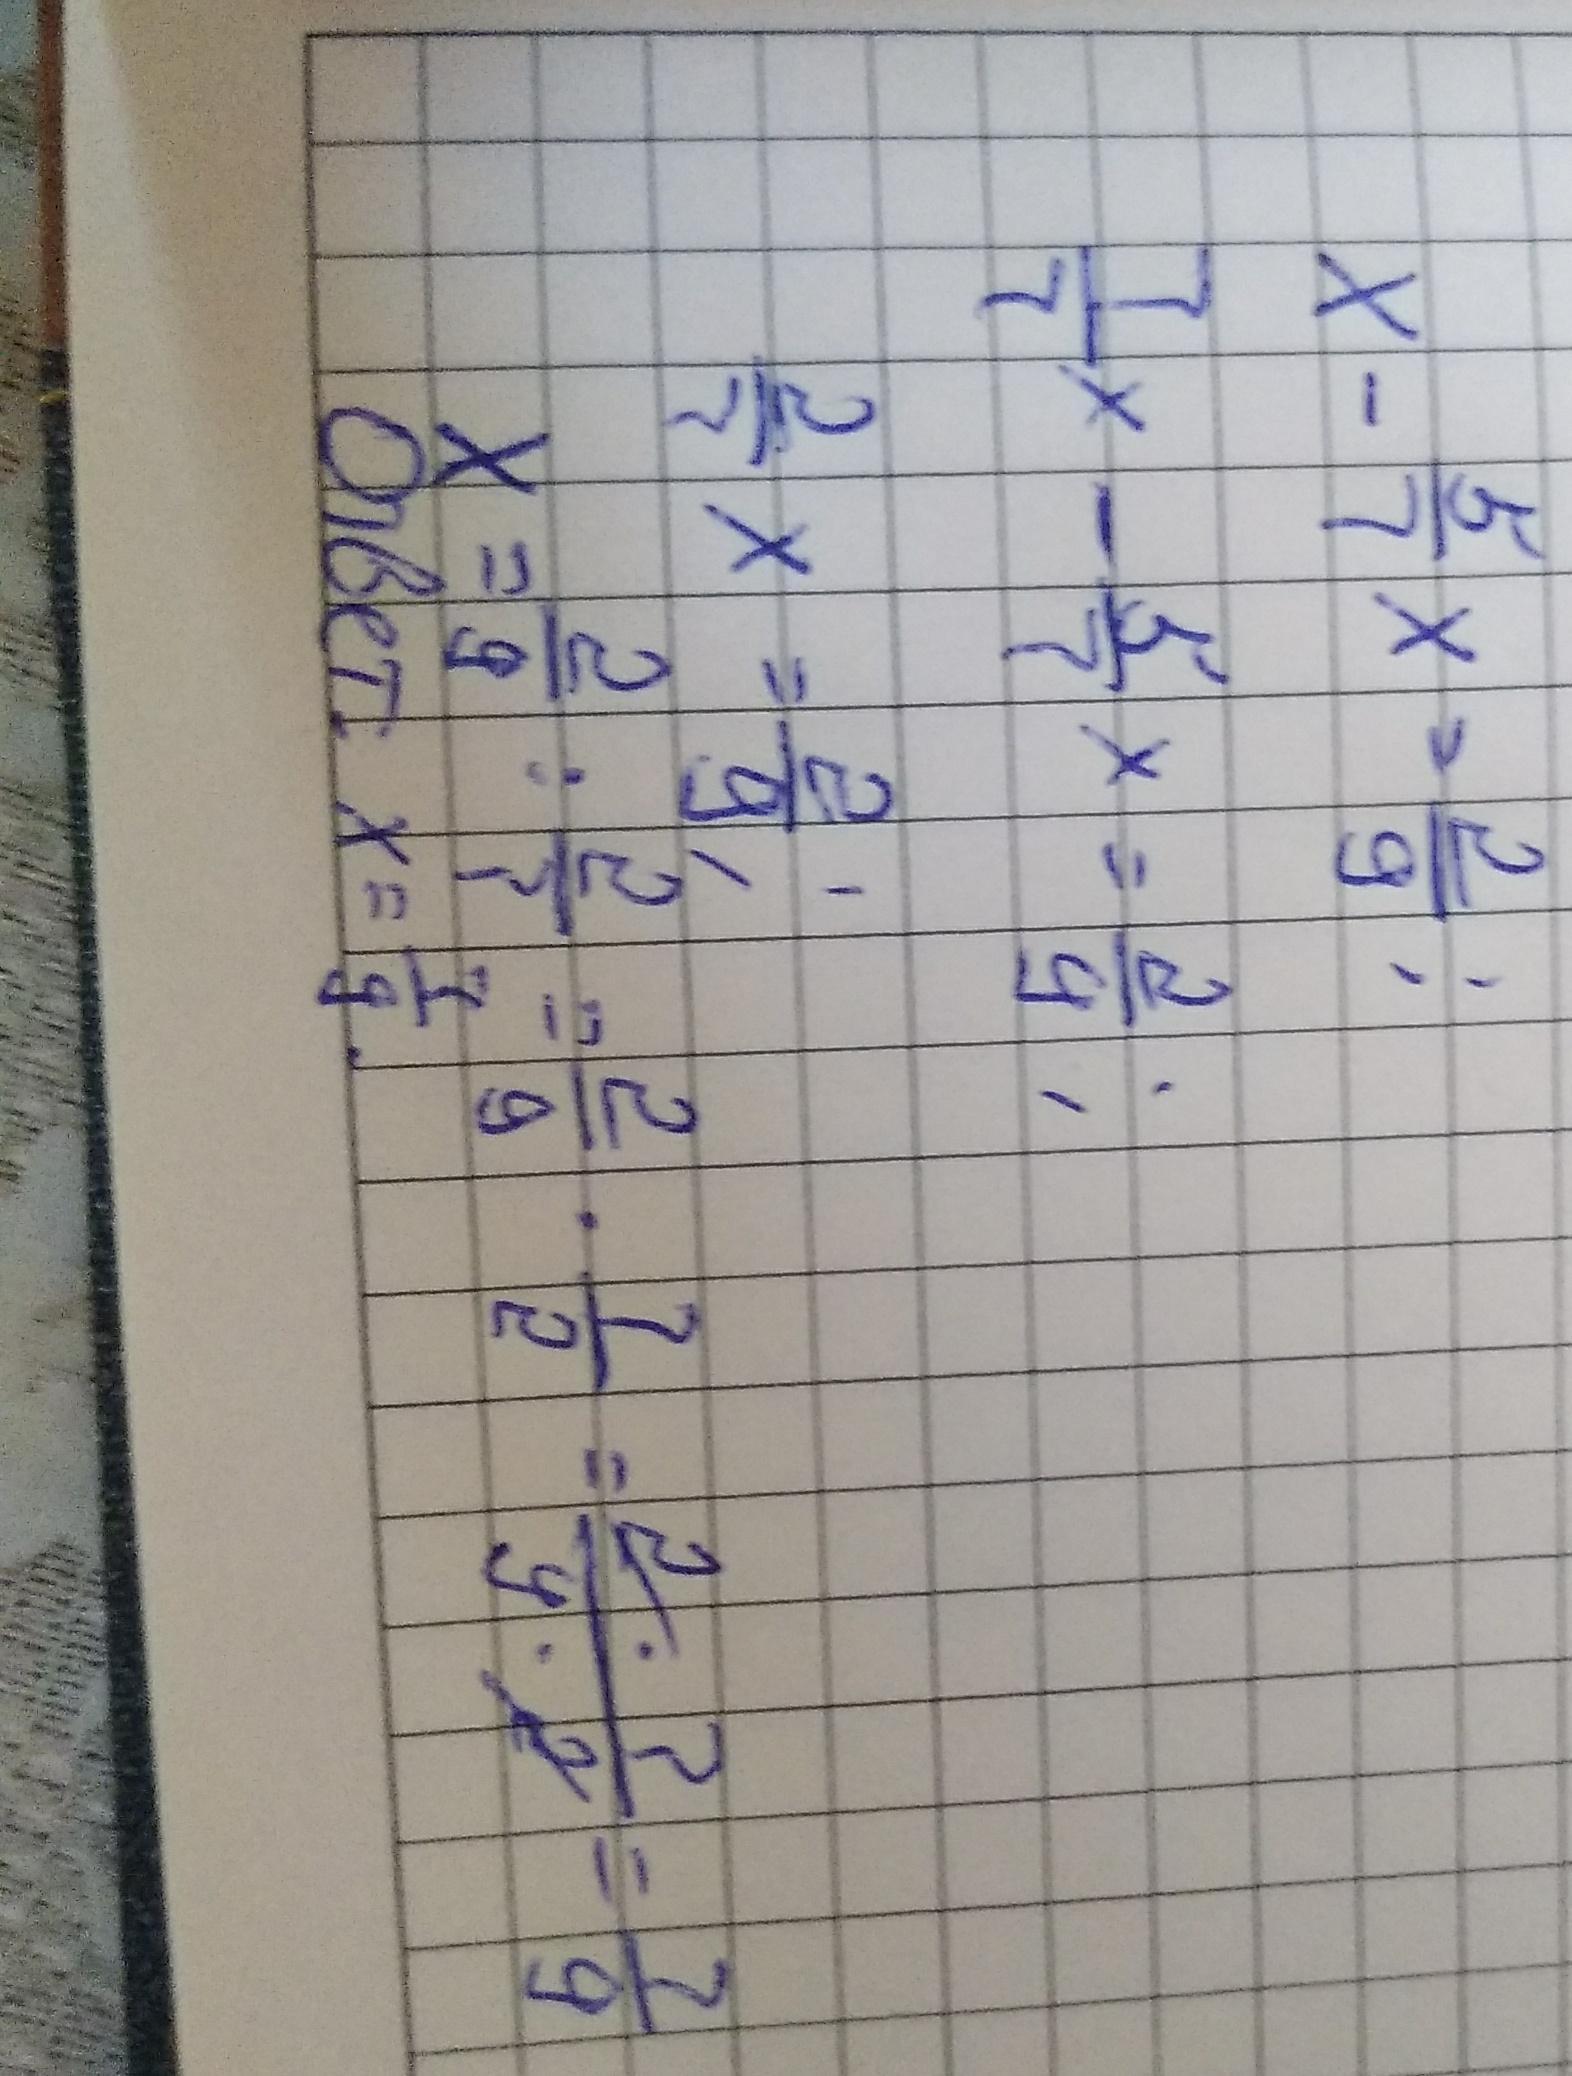 x - 5/7 x = 2/9 ;
7/7 x - 5/7 x = 2/9 ;
2/7 x = 2/9 ;
x = 2/9 : 2/7 = 2/9 · 7/2 = 2 · 7/9 · 2 = 7/9
Ответ: x = 7/9.